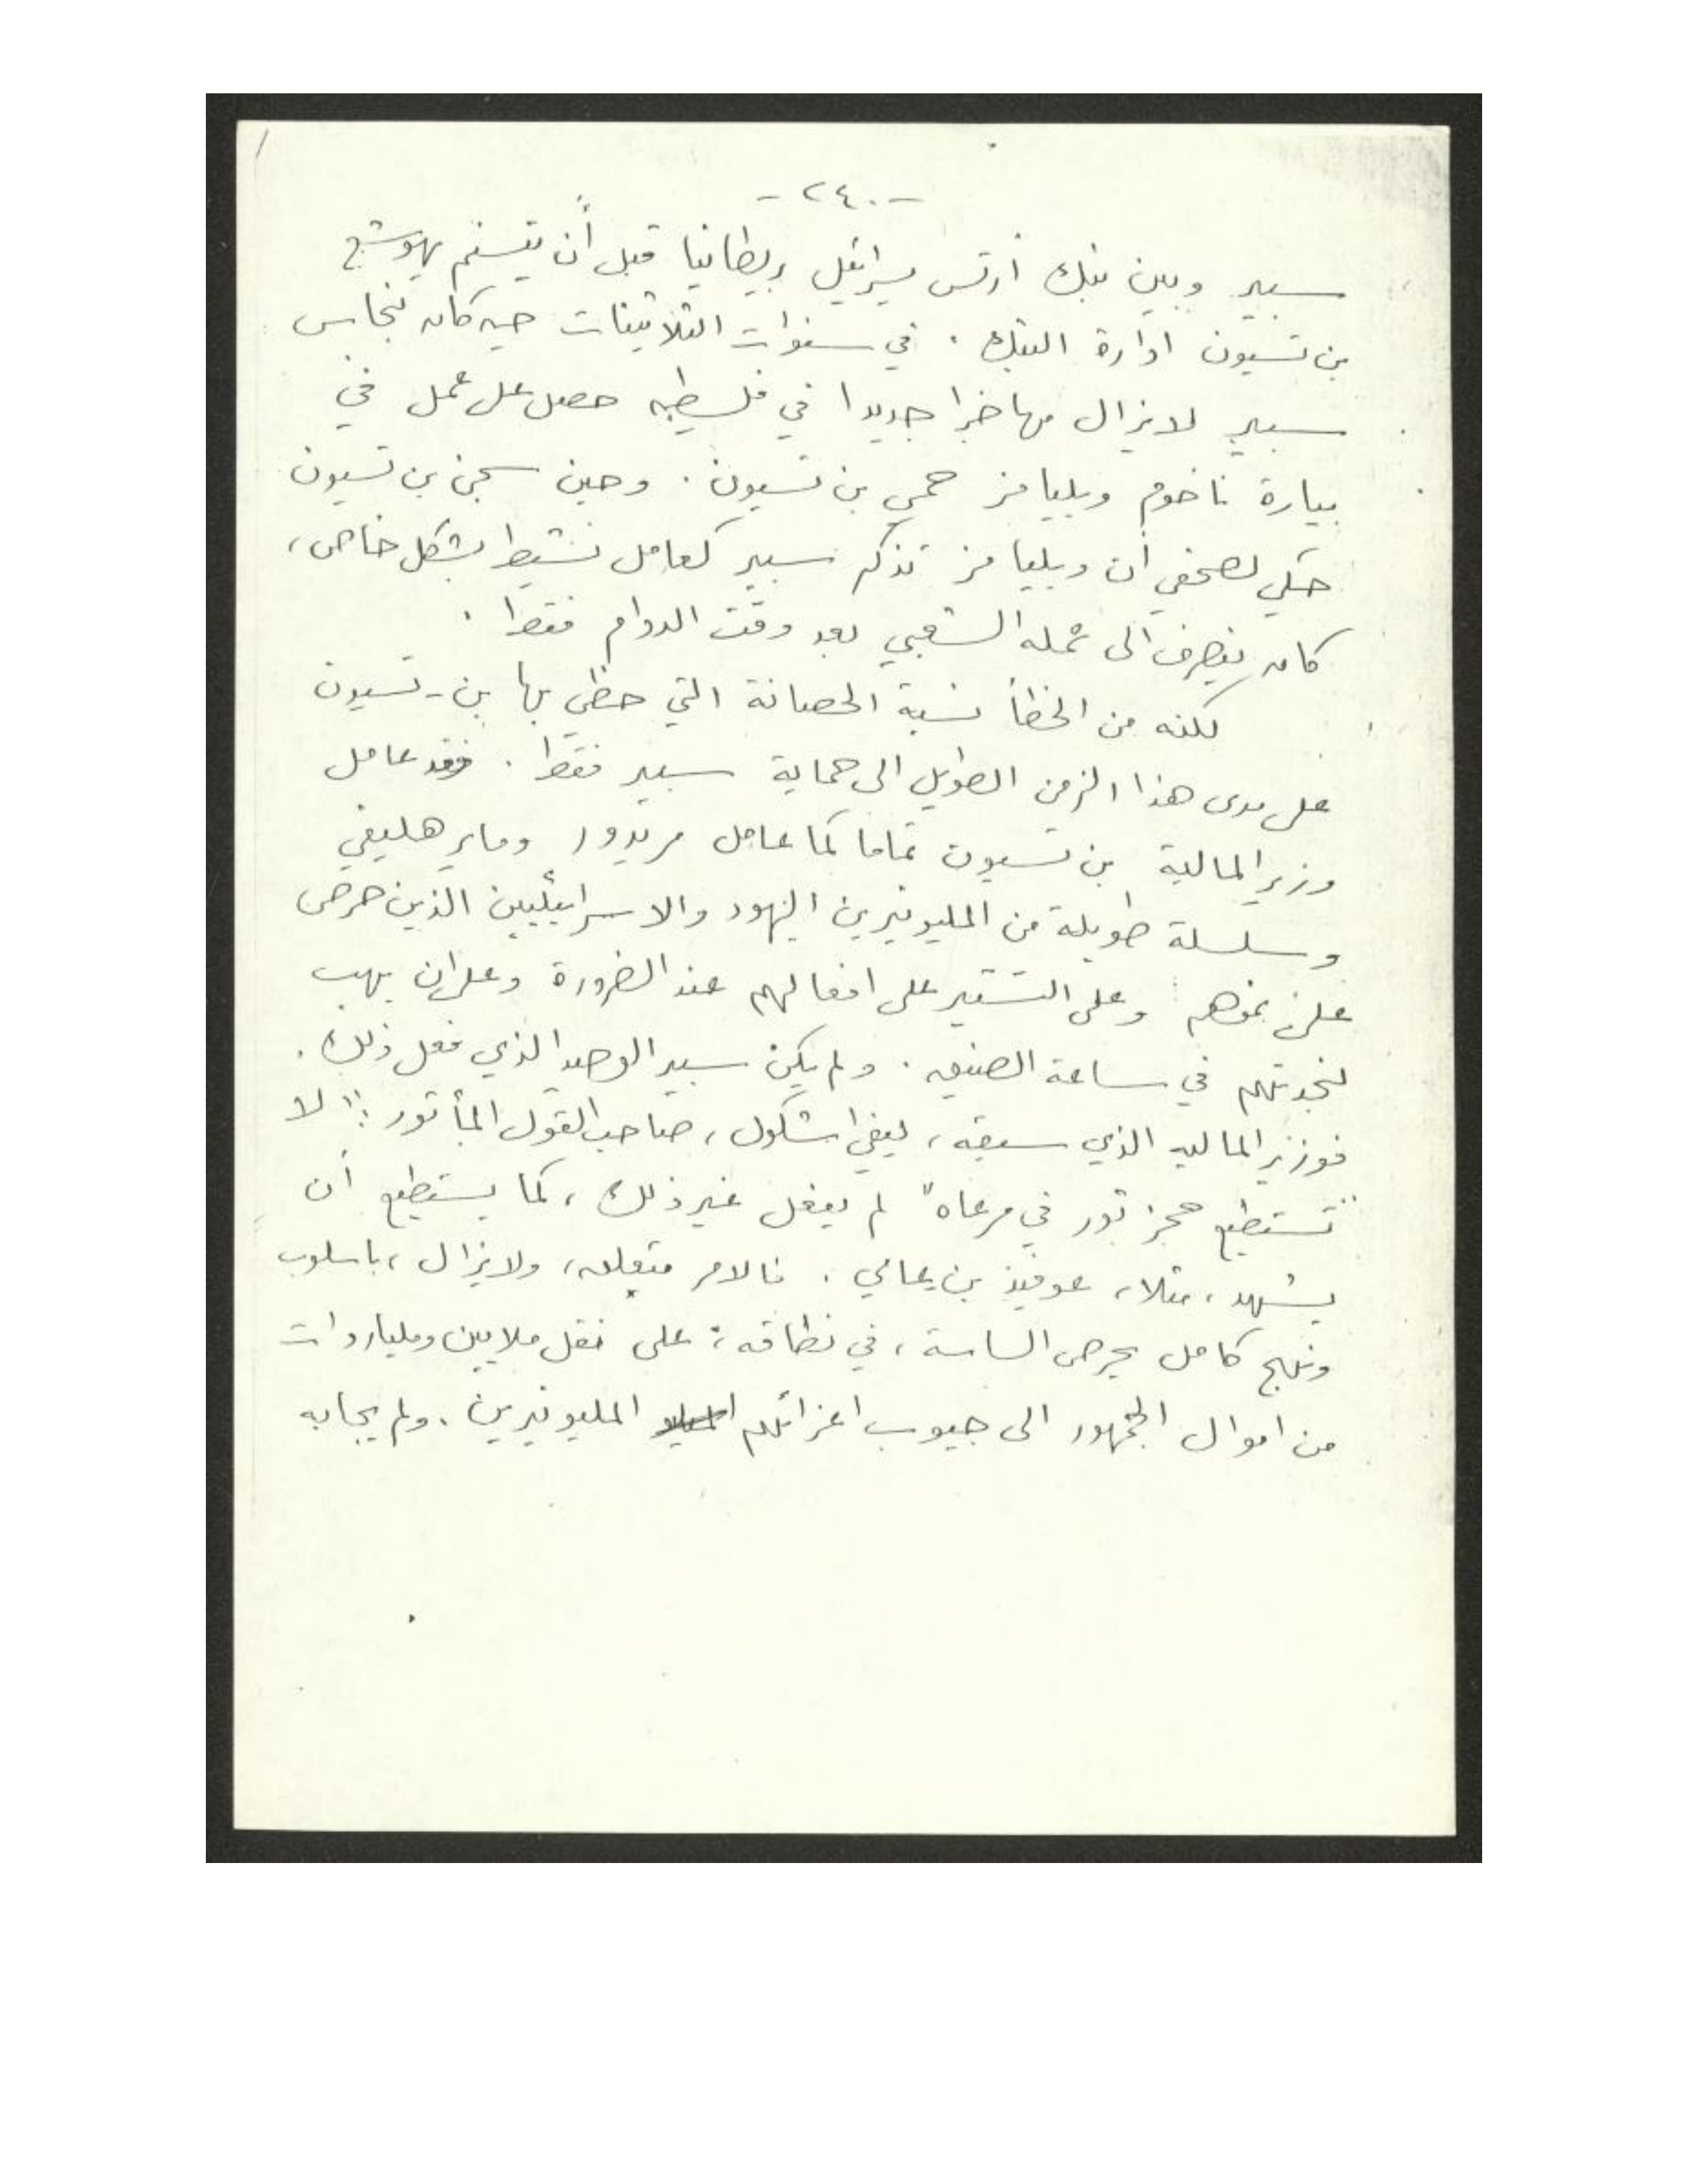 - ٢٤٠ -
سبير وبين بنك أرتس يسرائيل بريطانيا قبل أن يتسنم يهوشع
بن تسيون ادارة البنك . في سنوات الثلاثينات حين كان بنحاس
سبير لايزال مهاجرا جديدا في فلسطين حصل على عمل في
بيارة ناخوم ويليامز حمي بن تسيون . وحين سجن بن تسيون
حكي لصحفي أن ويليامز تذكر سبير كعامل نشيط بشكل خاص ،
كان ينصرف الى عمله الشعبي بعد وقت الدوام فقط .
لكنه من الخطأ نسبة الحصانة التي حظي بها بن - تسيون
على مدى هذا الزمن الطويل الى حماية سبير فقط . فقد عامل
وزير المالية بن تسيون تماما كما عامل مريدور وماير هليفي
وسلسلة طويلة من المليونيرين اليهود والاسرائيليين الذين حرص
على نموهم وعلى التستير على افعالهم عند الضرورة وعلى ان يهب
لنجدتهم في ساعة الضيق . ولم يكن سبير الوحيد الذي فعل ذلك .
فوزير المالية الذي سبقه ، ليفي اشكول ، صاحب القول المأثور : " لا
تستطيع حجز ثور في مرعاه " لم يفعل غير ذلك ، كما يستطيع أن
يشهد ، مثلا ، عوفيد بن يعامي . فالامر متعلق ، ولايزال ، باسلوب
ونهج كامل يحرص الساسة ، في نطاقه ، على نقل ملايين ومليارات
من اموال الجمهور الى جيوب اعزائهم المليونيرين . ولم يجابه